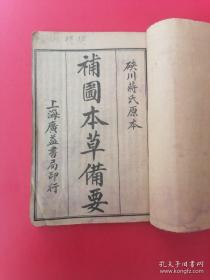 硤川蔣氏原本
補圖本草備要
上海廣益書局印行
孔夫子旧书网